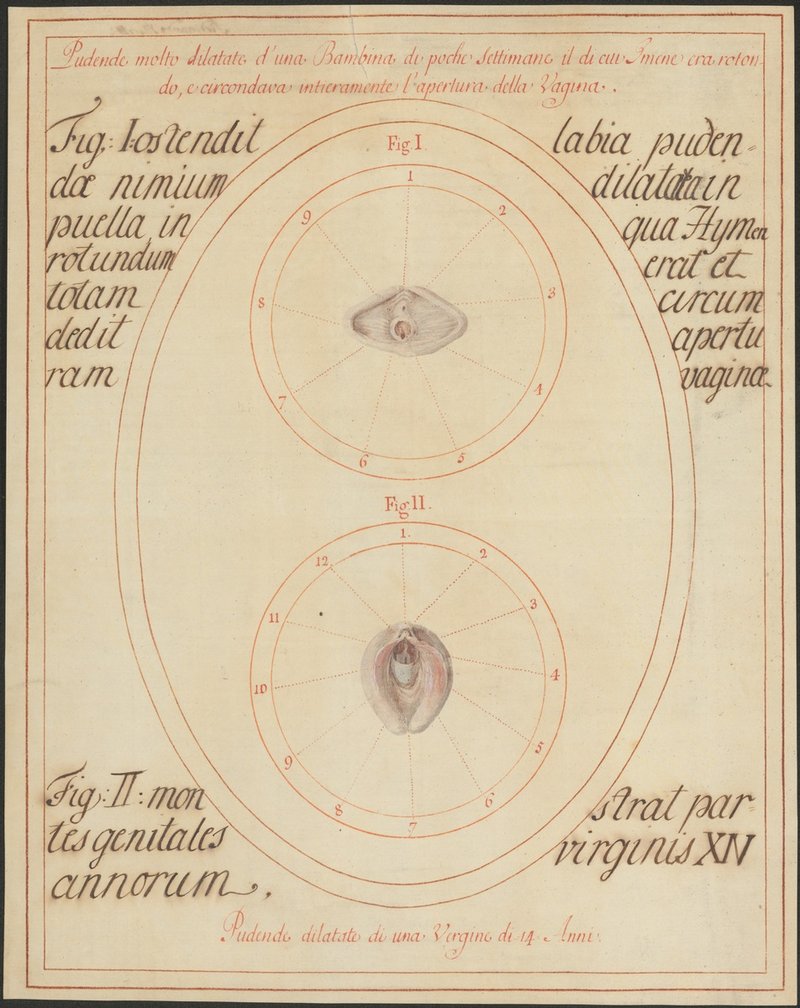 Pudende molto dilatate d'una Bambina di poche Settimane il di cui Imene era roton-
do, e circondava intieramente l'apertura della Vagina.
Fig: I ostendit labia puden-
dæ nimium dilatata in
puella, in qua Hymen
rotundum erat et
totam circum
dedit apertu
ram vaginæ
Fig. I.
1
2
3
4
5
6
7
8
9
Fig. II.
1.
2
3
4
5
6
7
8
9
10
11
12
Fig: II: mon strat par-
tes genitales virginis XIV
annorum.
Pudende dilatate di una Vergine di 14 Anni.